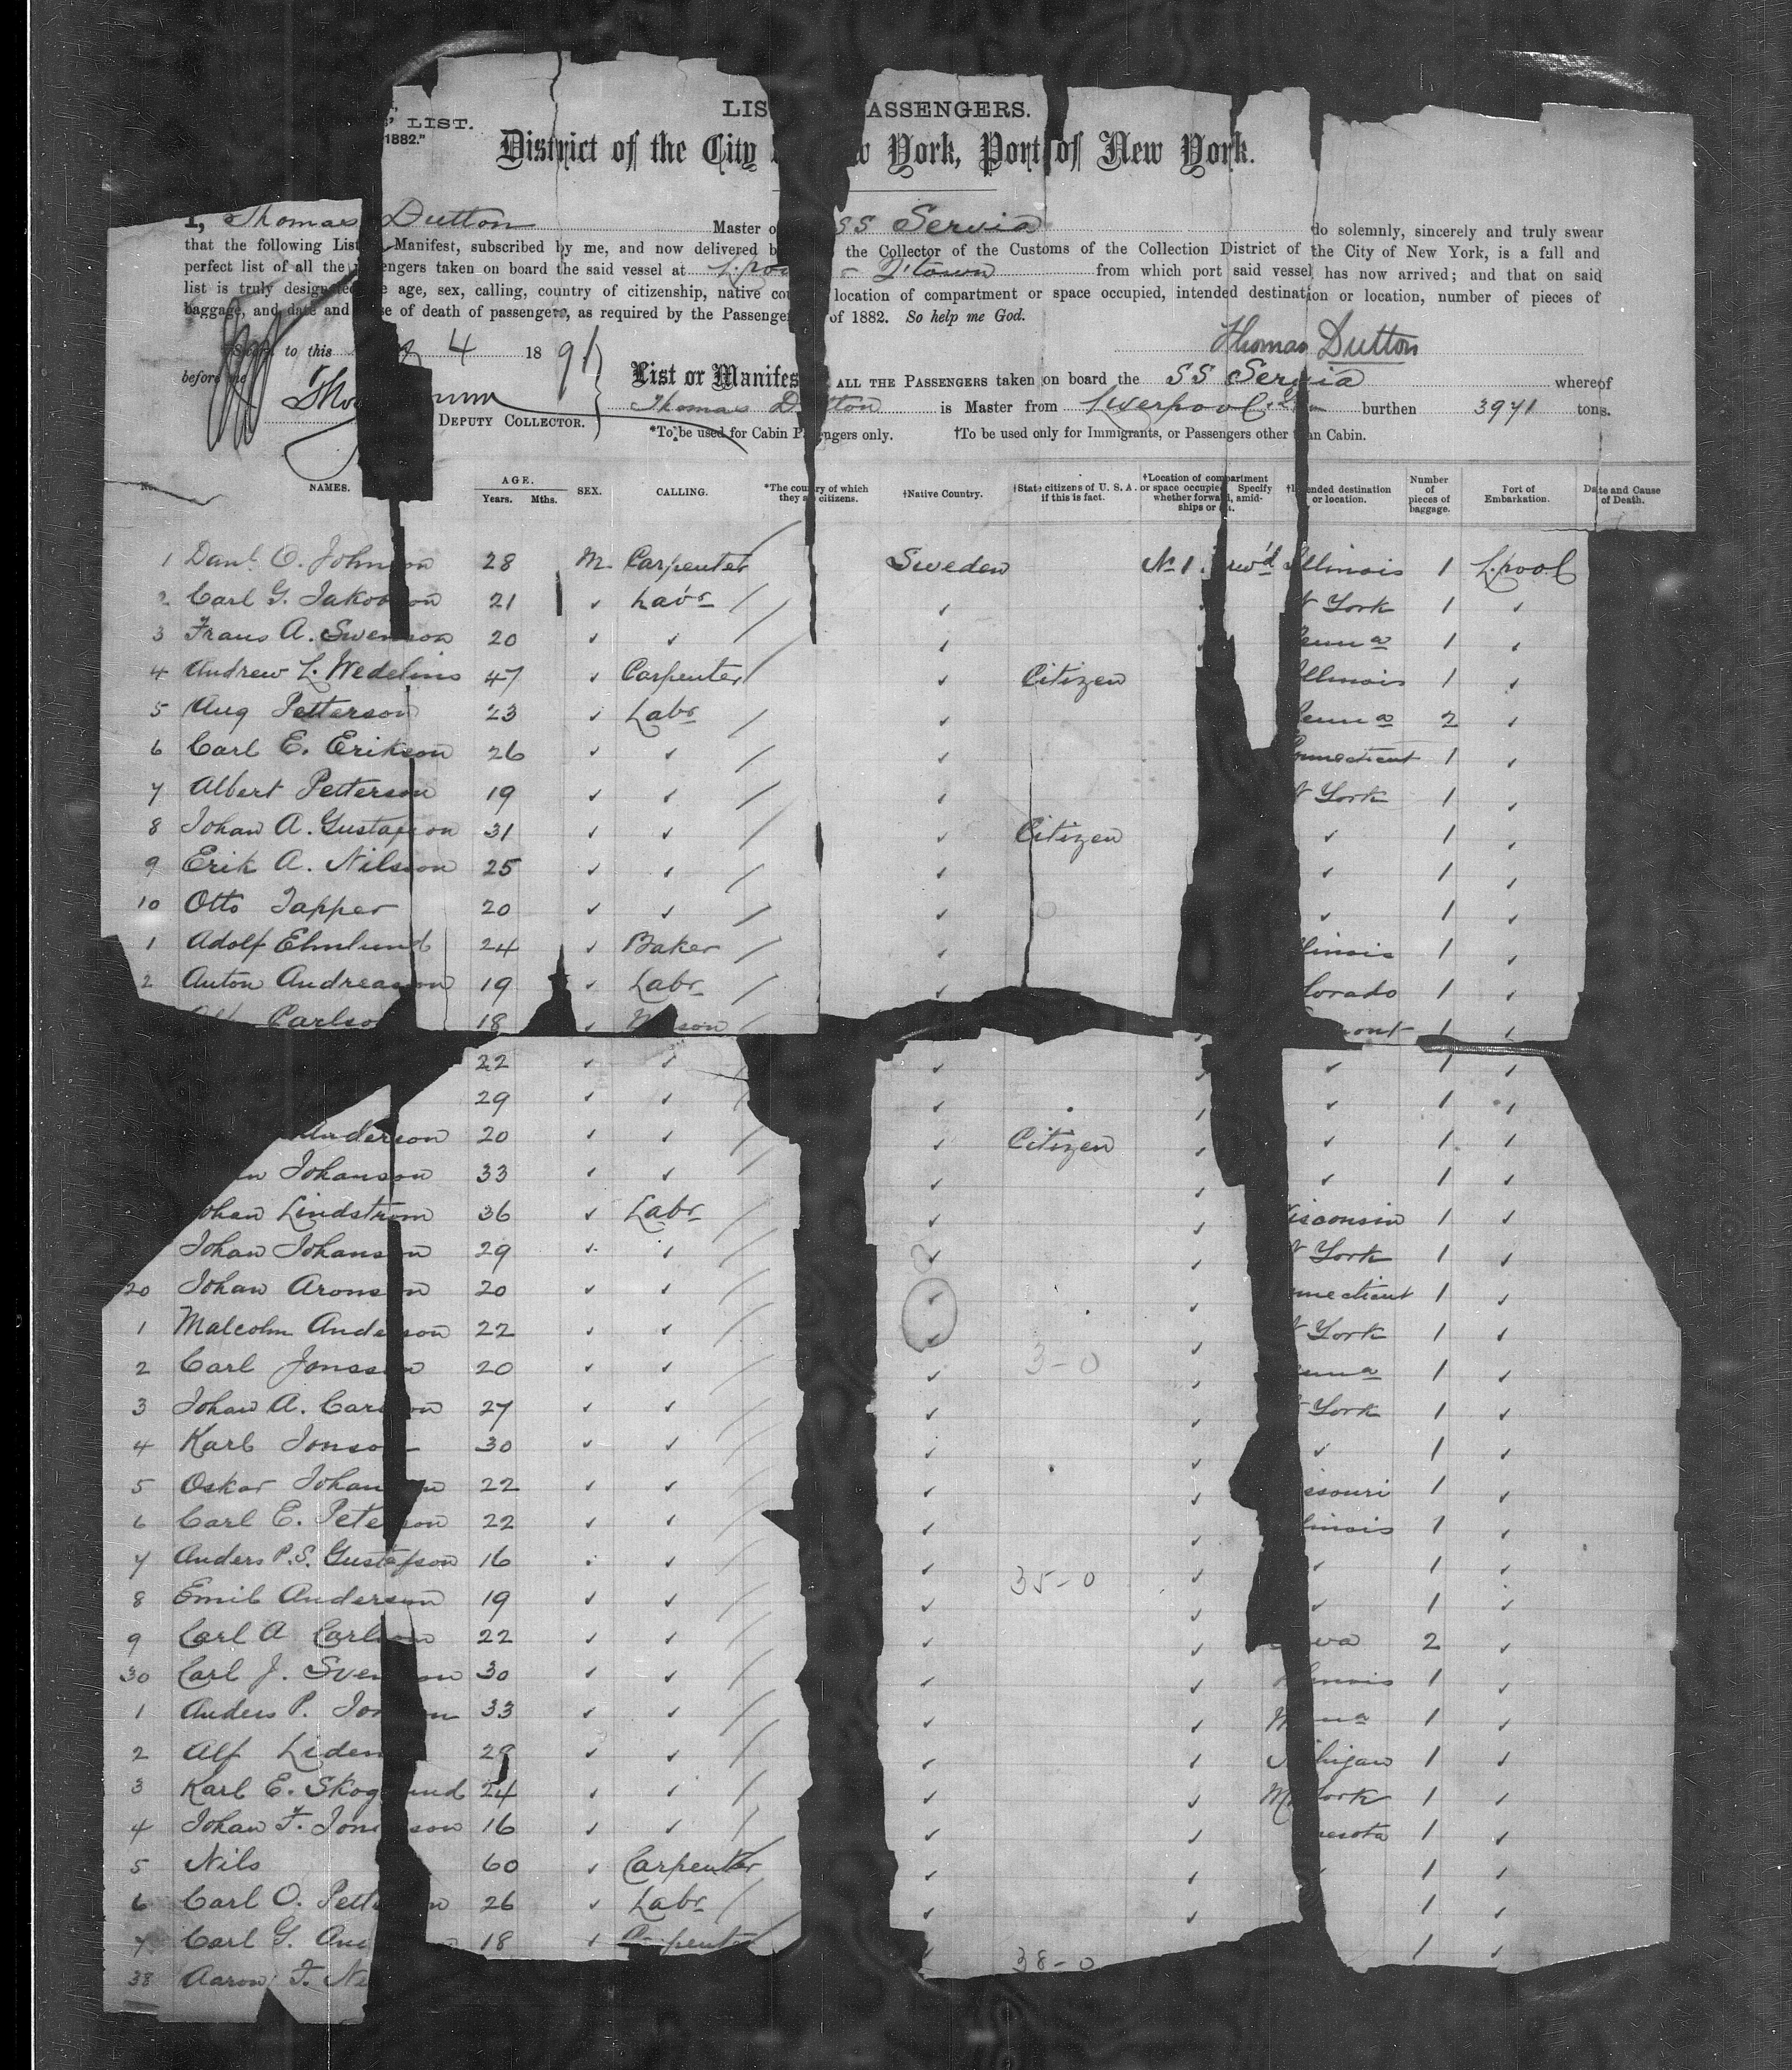 ' LIST.
1882."
LIS ASSENGERS.
District of the City w York, Port of New York.
I, Thomas Dutton Master o SS Servia do solemnly, sincerely and truly swear
that the following List Manifest, subscribed by me, and now delivered b the Collector of the Customs of the Collection District of the City of New York, is a full and
perfect list of all the engers taken on board the said vessel at L.poo - Q'town from which port said vessel has now arrived; and that on said
list is truly designated e age, sex, calling, country of citizenship, native cou location of compartment or space occupied, intended destination or location, number of pieces of
baggage, and date and se of death of passengers, as required by the Passenge of 1882. So help me God.
Thomas Dutton
Sworn to this 4 1891
before me
DEPUTY COLLECTOR.
List or Manifes ALL THE PASSENGERS taken on board the SS Servia whereof
Thomas D tton is Master from Liverpool burthen 3971 tons.
*To be used for Cabin P engers only. †To be used only for Immigrants, or Passengers other than Cabin.
No. NAMES. AGE. Years. Mths. SEX. CALLING. *The country of which they are citizens. †Native Country. †State citizens of U. S. A. if this is fact. †Location of compartment or space occupied. Specify whether forward, amid-ships or a . †Intended destination or location. Number of pieces of baggage. Port of Embarkation. Date and Cause of Death.
1 Danl. O. Johnson 28 M. Carpenter Sweden No 1 rw'd Illinois 1 L.pool
2 Carl G. Jakobson 21 ✓ Labr ✓ N York 1 ✓
3 Frans A. Swenson 20 ✓ ✓ ✓ enna 1 ✓
4 Andrew L. Wedelins 47 ✓ Carpenter ✓ Citizen Illinois 1 ✓
5 Aug Petterson 23 ✓ Labr ✓ enna 2 ✓
6 Carl E. Erikson 26 ✓ ✓ ✓ onnecticut 1 ✓
7 Albert Petterson 19 ✓ ✓ ✓ N York 1 ✓
8 Johan A. Gustafson 31 ✓ ✓ ✓ Citizen ✓ 1 ✓
9 Erik A. Nilsson 25 ✓ ✓ ✓ ✓ 1 ✓
10 Otto Tapper 20 ✓ ✓ ✓ ✓ 1 ✓
1 Adolf Ehnlund 24 ✓ Baker ✓ llinois 1 ✓
2 Anton Andreason 19 ✓ Labr ✓ lorado 1 ✓
Carlso 18 ✓ M son mont 1 ✓
22 ✓ ✓ ✓ ✓ ✓ 1 ✓
29 ✓ ✓ ✓ ✓ ✓ 1 ✓
Anderson 20 ✓ ✓ ✓ Citizen ✓ ✓ 1 ✓
n Johanson 33 ✓ ✓ ✓ ✓ ✓ 1 ✓
ohan Lindstrom 36 ✓ Labr ✓ ✓ isconsin 1 ✓
Johan Johanson 29 ✓ ✓ ✓ ✓ N York 1 ✓
20 Johan Aronson 20 ✓ ✓ ✓ ✓ nnecticut 1 ✓
1 Malcolm Anderson 22 ✓ ✓ ✓ ✓ N York 1 ✓
2 Carl Jonsson 20 ✓ ✓ ✓ 3-0 ✓ nna 1 ✓
3 Johan A. Car on 27 ✓ ✓ ✓ ✓ York 1 ✓
4 Karl Jonson 30 ✓ ✓ ✓ ✓ ✓ 1 ✓
5 Oskar Johan n 22 ✓ ✓ ✓ ✓ ssouri 1 ✓
6 Carl E. Pete son 22 ✓ ✓ ✓ ✓ linois 1 ✓
7 Anders P.S. Gustafson 16 ✓ ✓ ✓ 35-0 ✓ ✓ 1 ✓
8 Emil Anderson 19 ✓ ✓ ✓ ✓ ✓ 1 ✓
9 Carl A Carlson 22 ✓ ✓ ✓ ✓ wa 2 ✓
30 Carl J. Sven n 30 ✓ ✓ ✓ ✓ linois 1 ✓
1 Anders P. Jo n 33 ✓ ✓ ✓ ✓ na 1 ✓
2 Alf Liden 29 ✓ ✓ ✓ ✓ chigan 1 ✓
3 Karl E. Skog und 24 ✓ ✓ ✓ ✓ York 1 ✓
4 Johan F. Jon son 16 ✓ ✓ ✓ ✓ nesota 1 ✓
5 Nils 60 ✓ Carpenter ✓ ✓ 1 ✓
6 Carl O. Pett n 26 ✓ Labr ✓ ✓ 1 ✓
7 Carl G. An 18 ✓ Carpenter 38-0 1 ✓
38 Aaron F. Ne